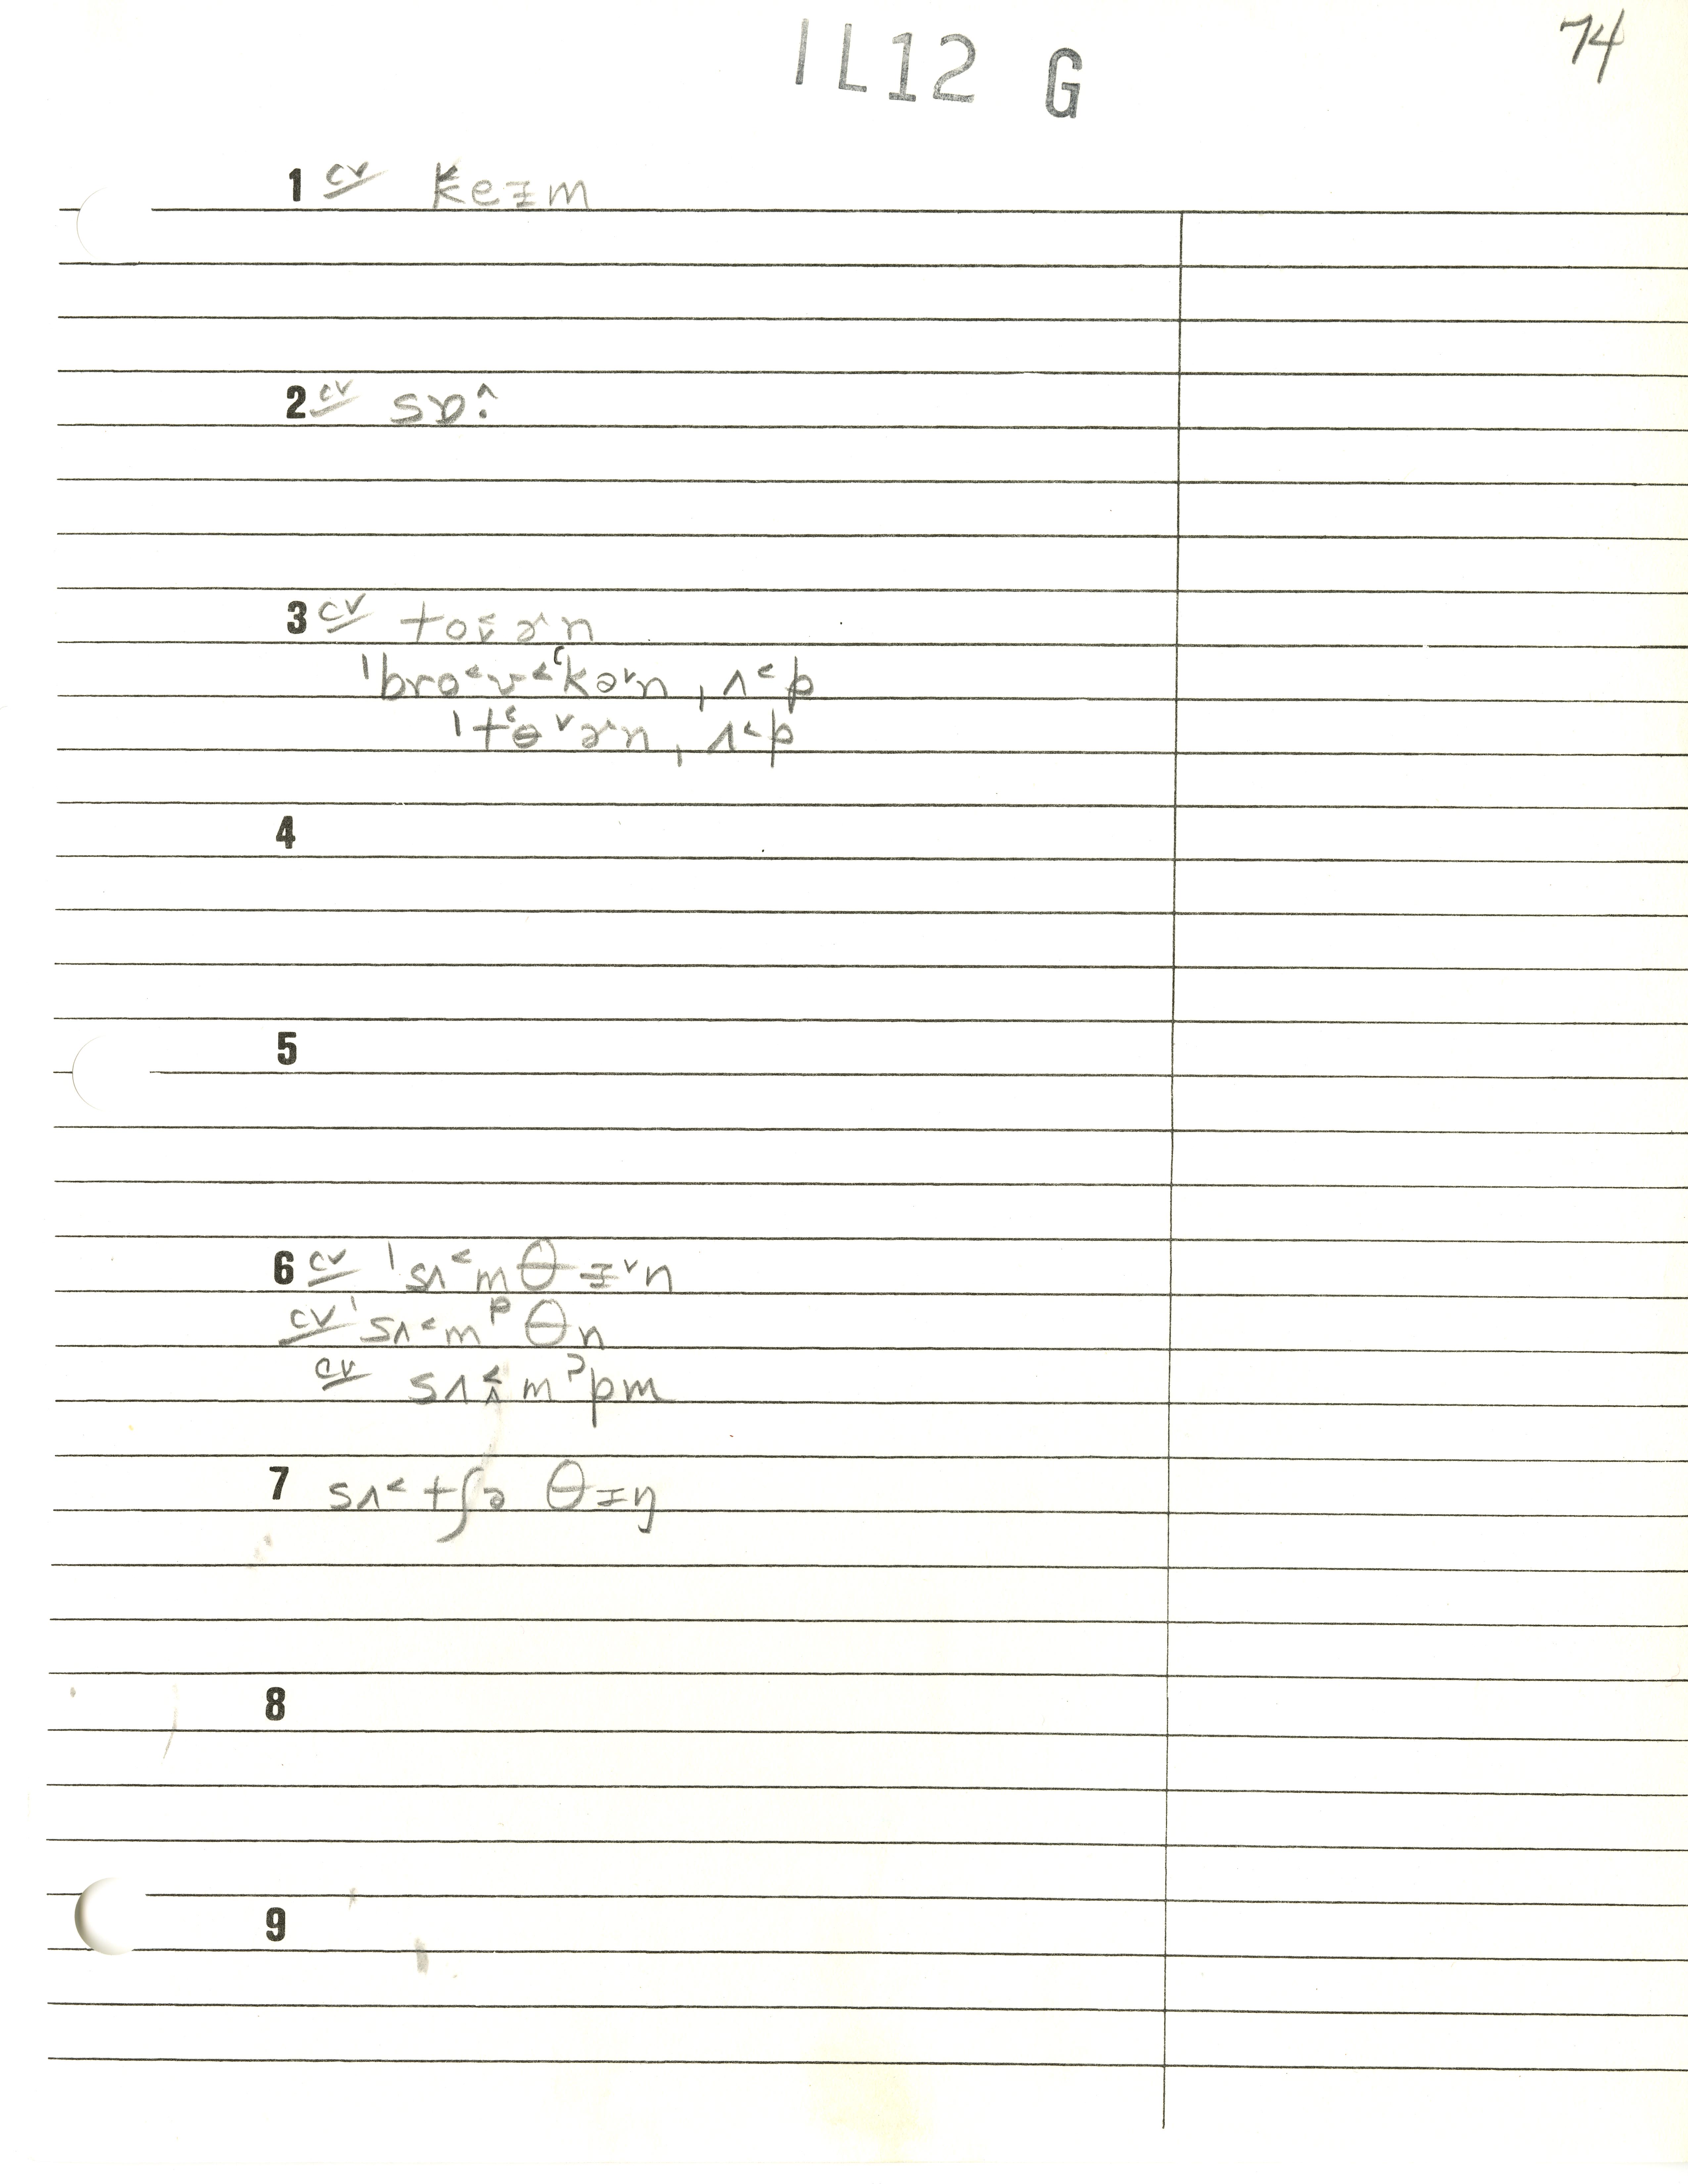 74
IL12 G
1 cv ke˂ɪm
2 cv sɒ:^
3 cv to˂˅ə^n
ˈbro˂v˂ʿkə˅n ˌʌ˂p
ˈtʿɵ˅ə^n ˌʌ˂p
4
5
6 cv ˈsʌ˂mθɪ˅n
cv ˈsʌ˂mᵖθn
cv sʌ˂^mˀpm
7 sʌ˂tʃə θɪŋ
8
9